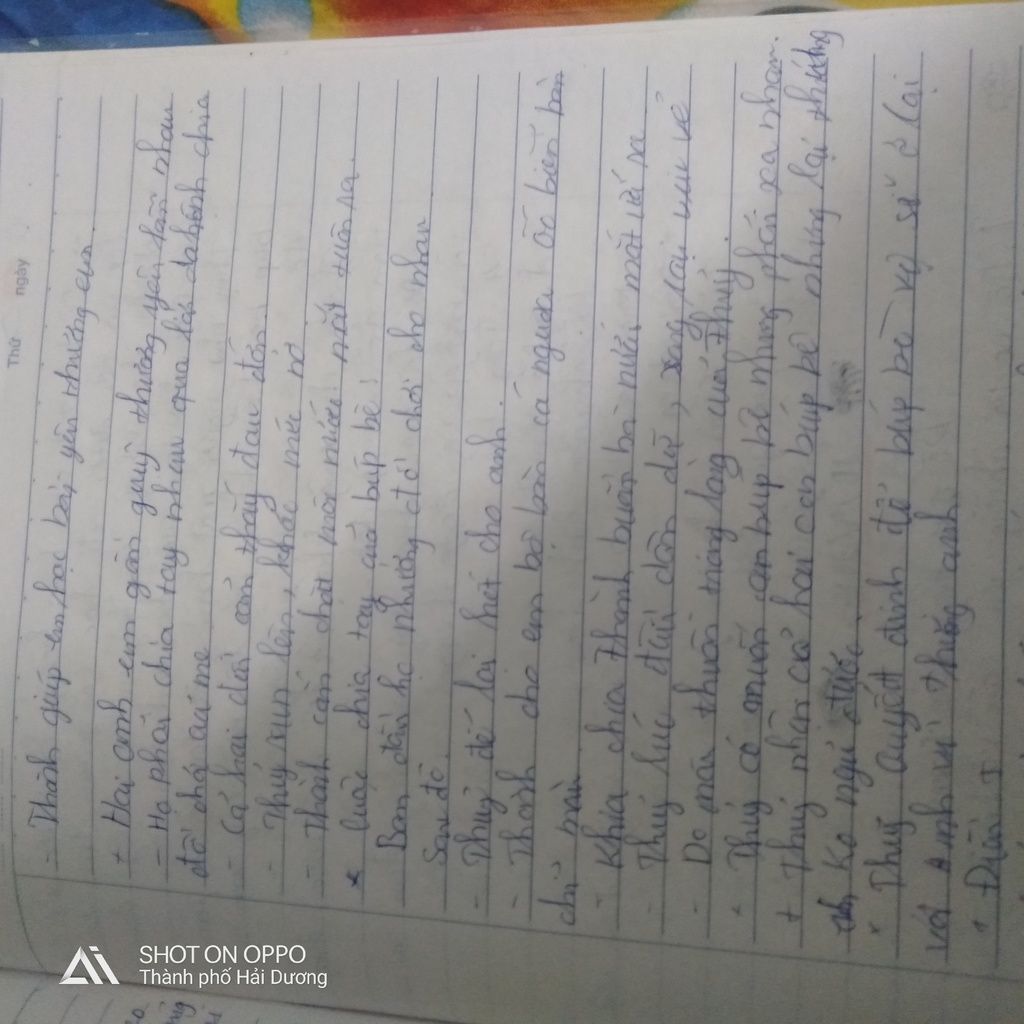 Thứ ngày
- Thành giúp em học bài, yêu thương em.
+ Hai anh em gần gũi thương yêu lẫn nhau
- Họ phải chia tay nhau qua lời chia
đồ chơi của mẹ
- Cả hai đều thấy đau đớn.
- Thuỷ run lên, khóc nức nở
- Thành cắn chặt môi nước mắt tuôn ra.
* Cuộc chia tay của búp bê:
Ban đầu họ nhường đồ chơi cho nhau
Sau đó
- Thuỷ để lại hết cho anh.
- Thành cho em bộ bàn cá ngựa ốc biển bàn
chỉ màu
- Khi chia Thành buồn bã nước mắt ứa ra
- Thuỷ lúc đầu dận dữ, xong lại vui vẻ
- Do mâu thuẫn trong lòng của Thuỷ.
Thuỷ có muốn anh búp bê nhưng phải xa nhau.
+ Thuỷ nhận cả hai con búp bê nhưng lại thương
Ko ngủ được.
* Thuỷ quyết định để búp bê vệ sĩ ở lại
với Anh vì thương anh
SHOT ON OPPO
Thành phố Hải Dương